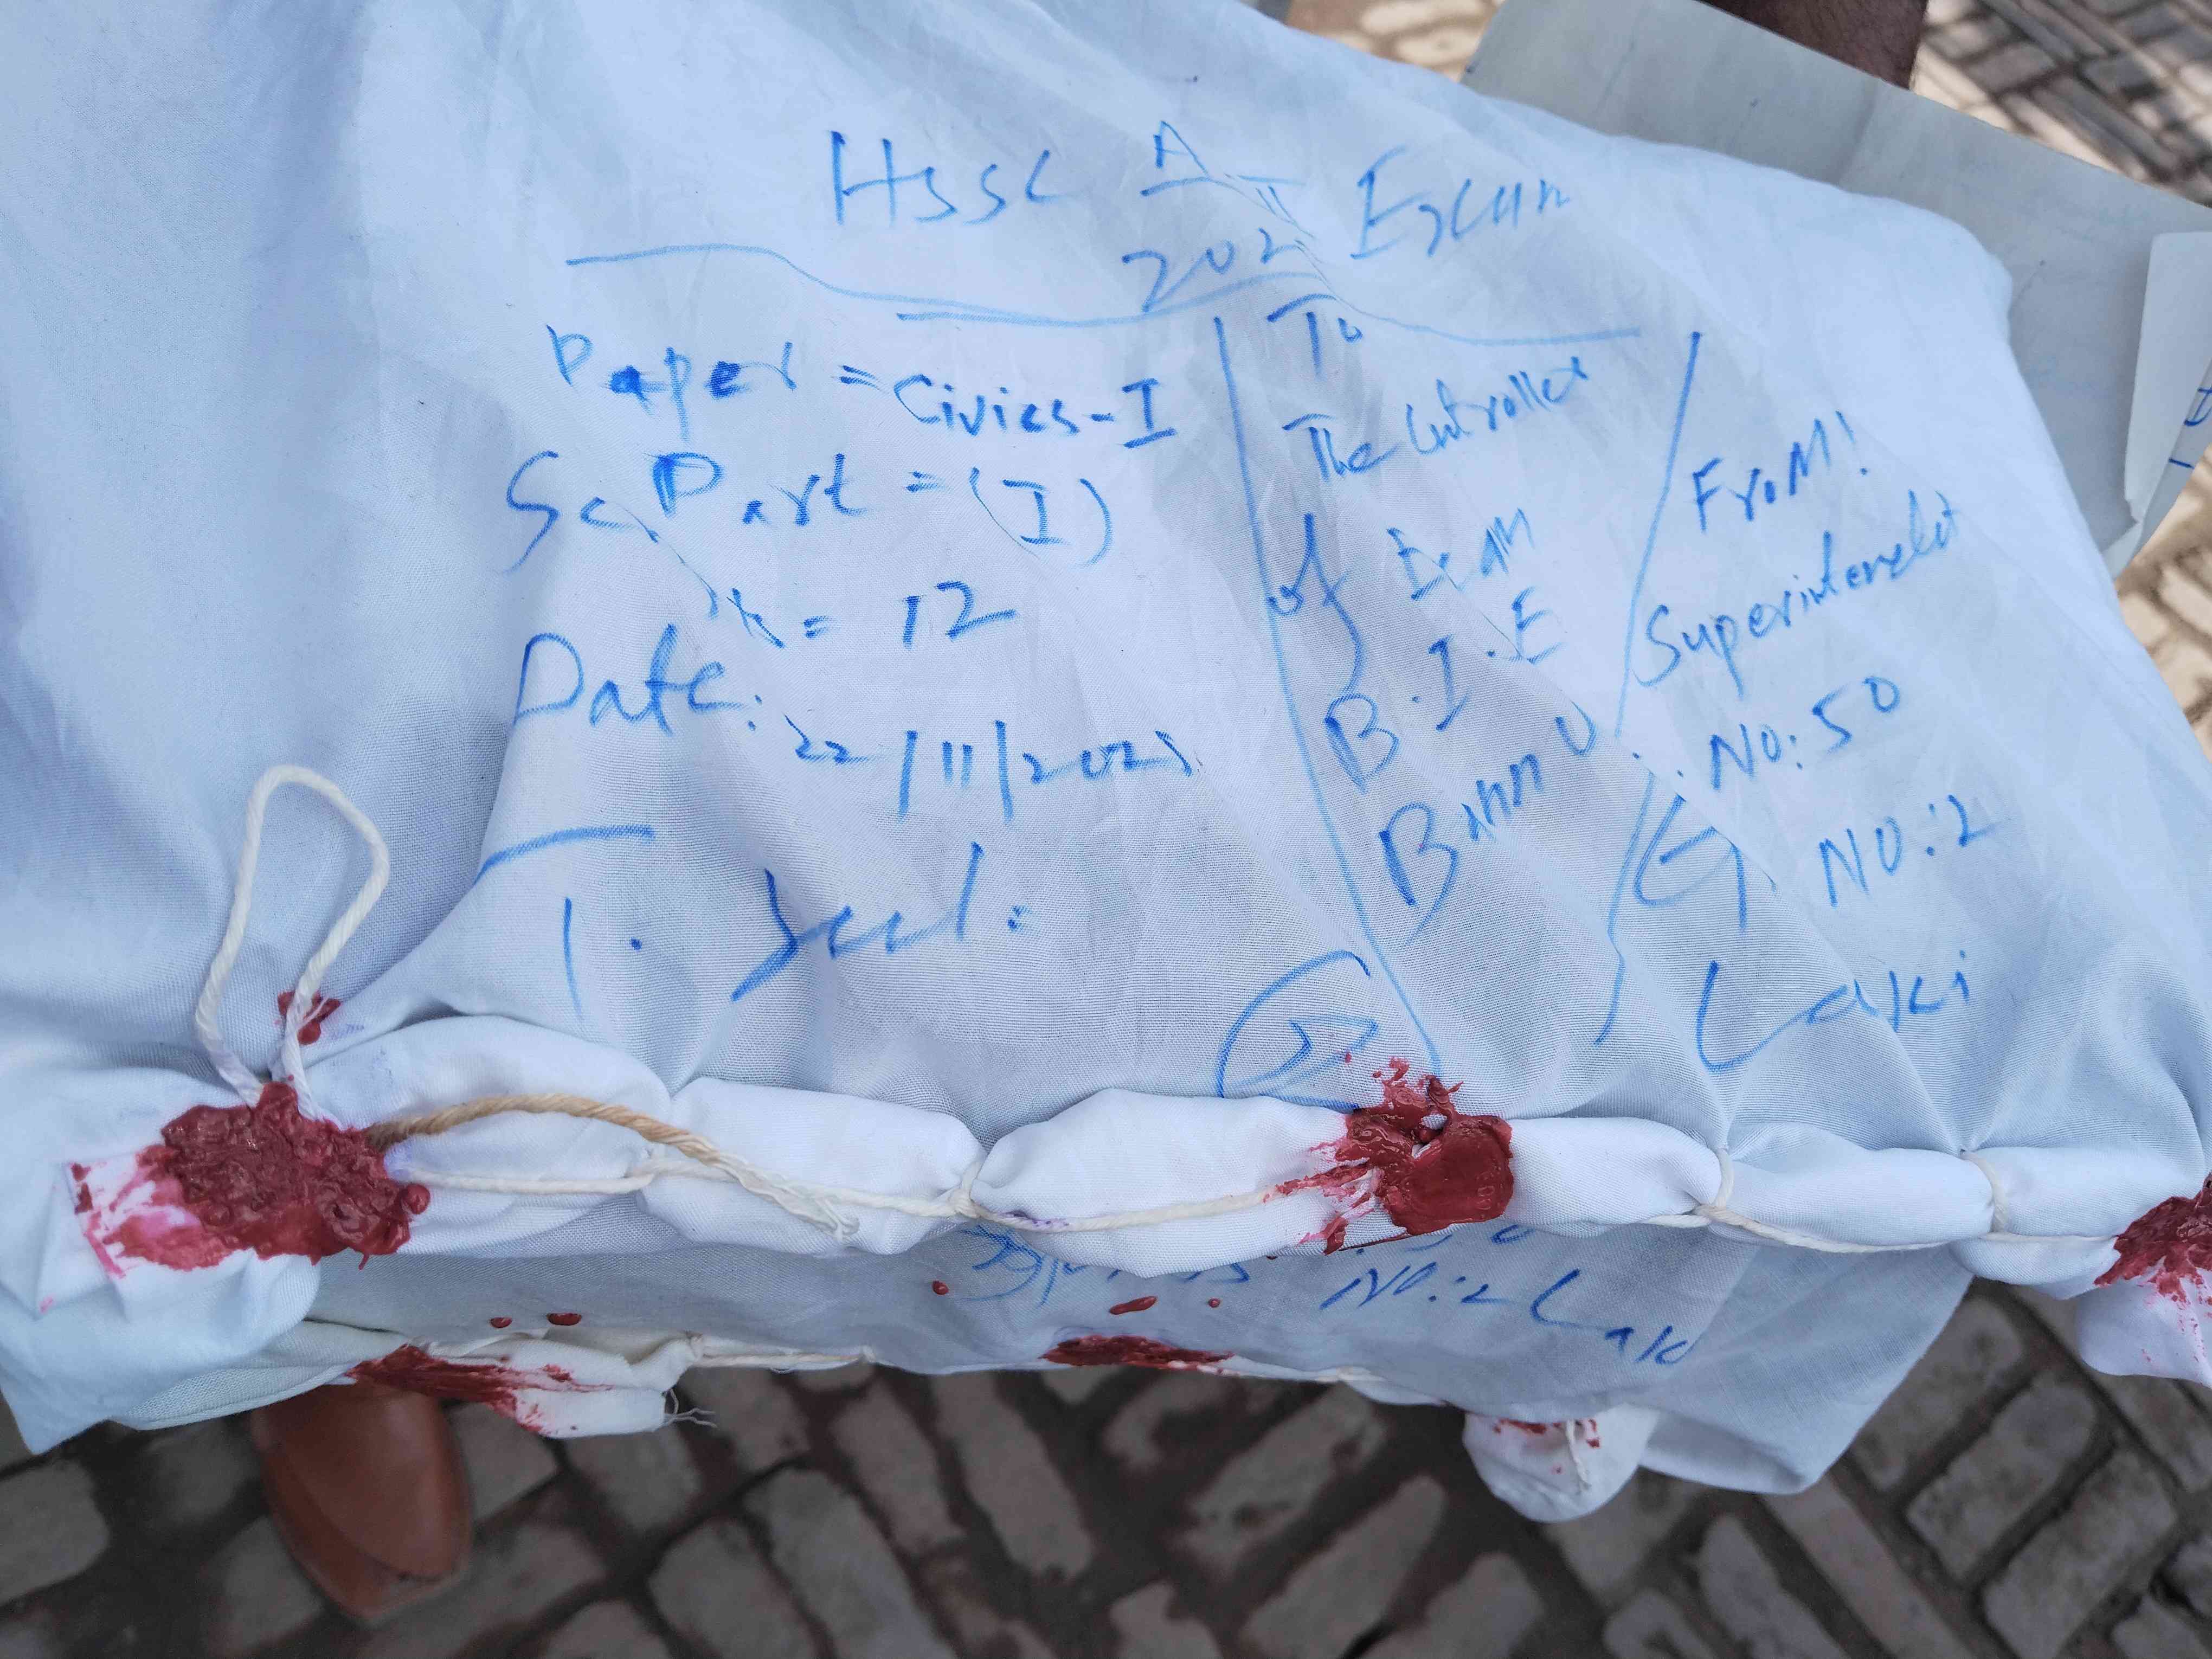 HSSC A-II Exam
2021
Paper = Civics-I
Sc Part = (I)
= 12
Date: 22/11/2021
T. Seal =
To
The Controller
of Exam
B.I.E
Bannu
From!
Superintendent
No: 50
G. No: 2
Laki
No: 2 Lak